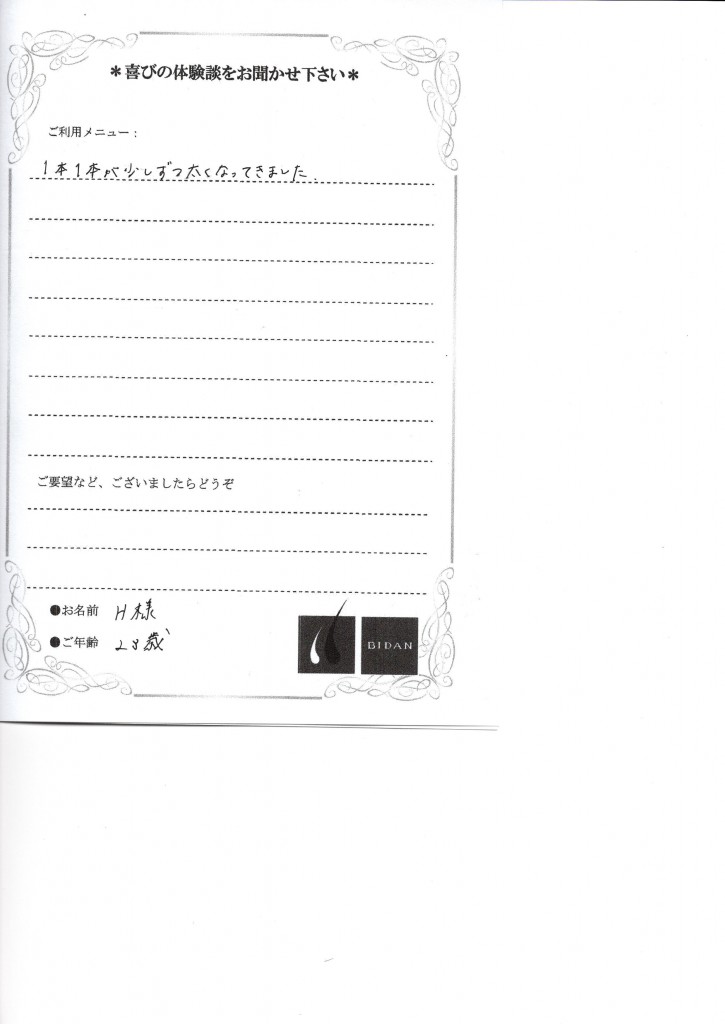 ＊喜びの体験談をお聞かせ下さい＊
ご利用メニュー：
1本1本が少しずつ太くなってきました.
ご要望など、ございましたらどうぞ
●お名前 H様
●ご年齢 23歳
BIDAN